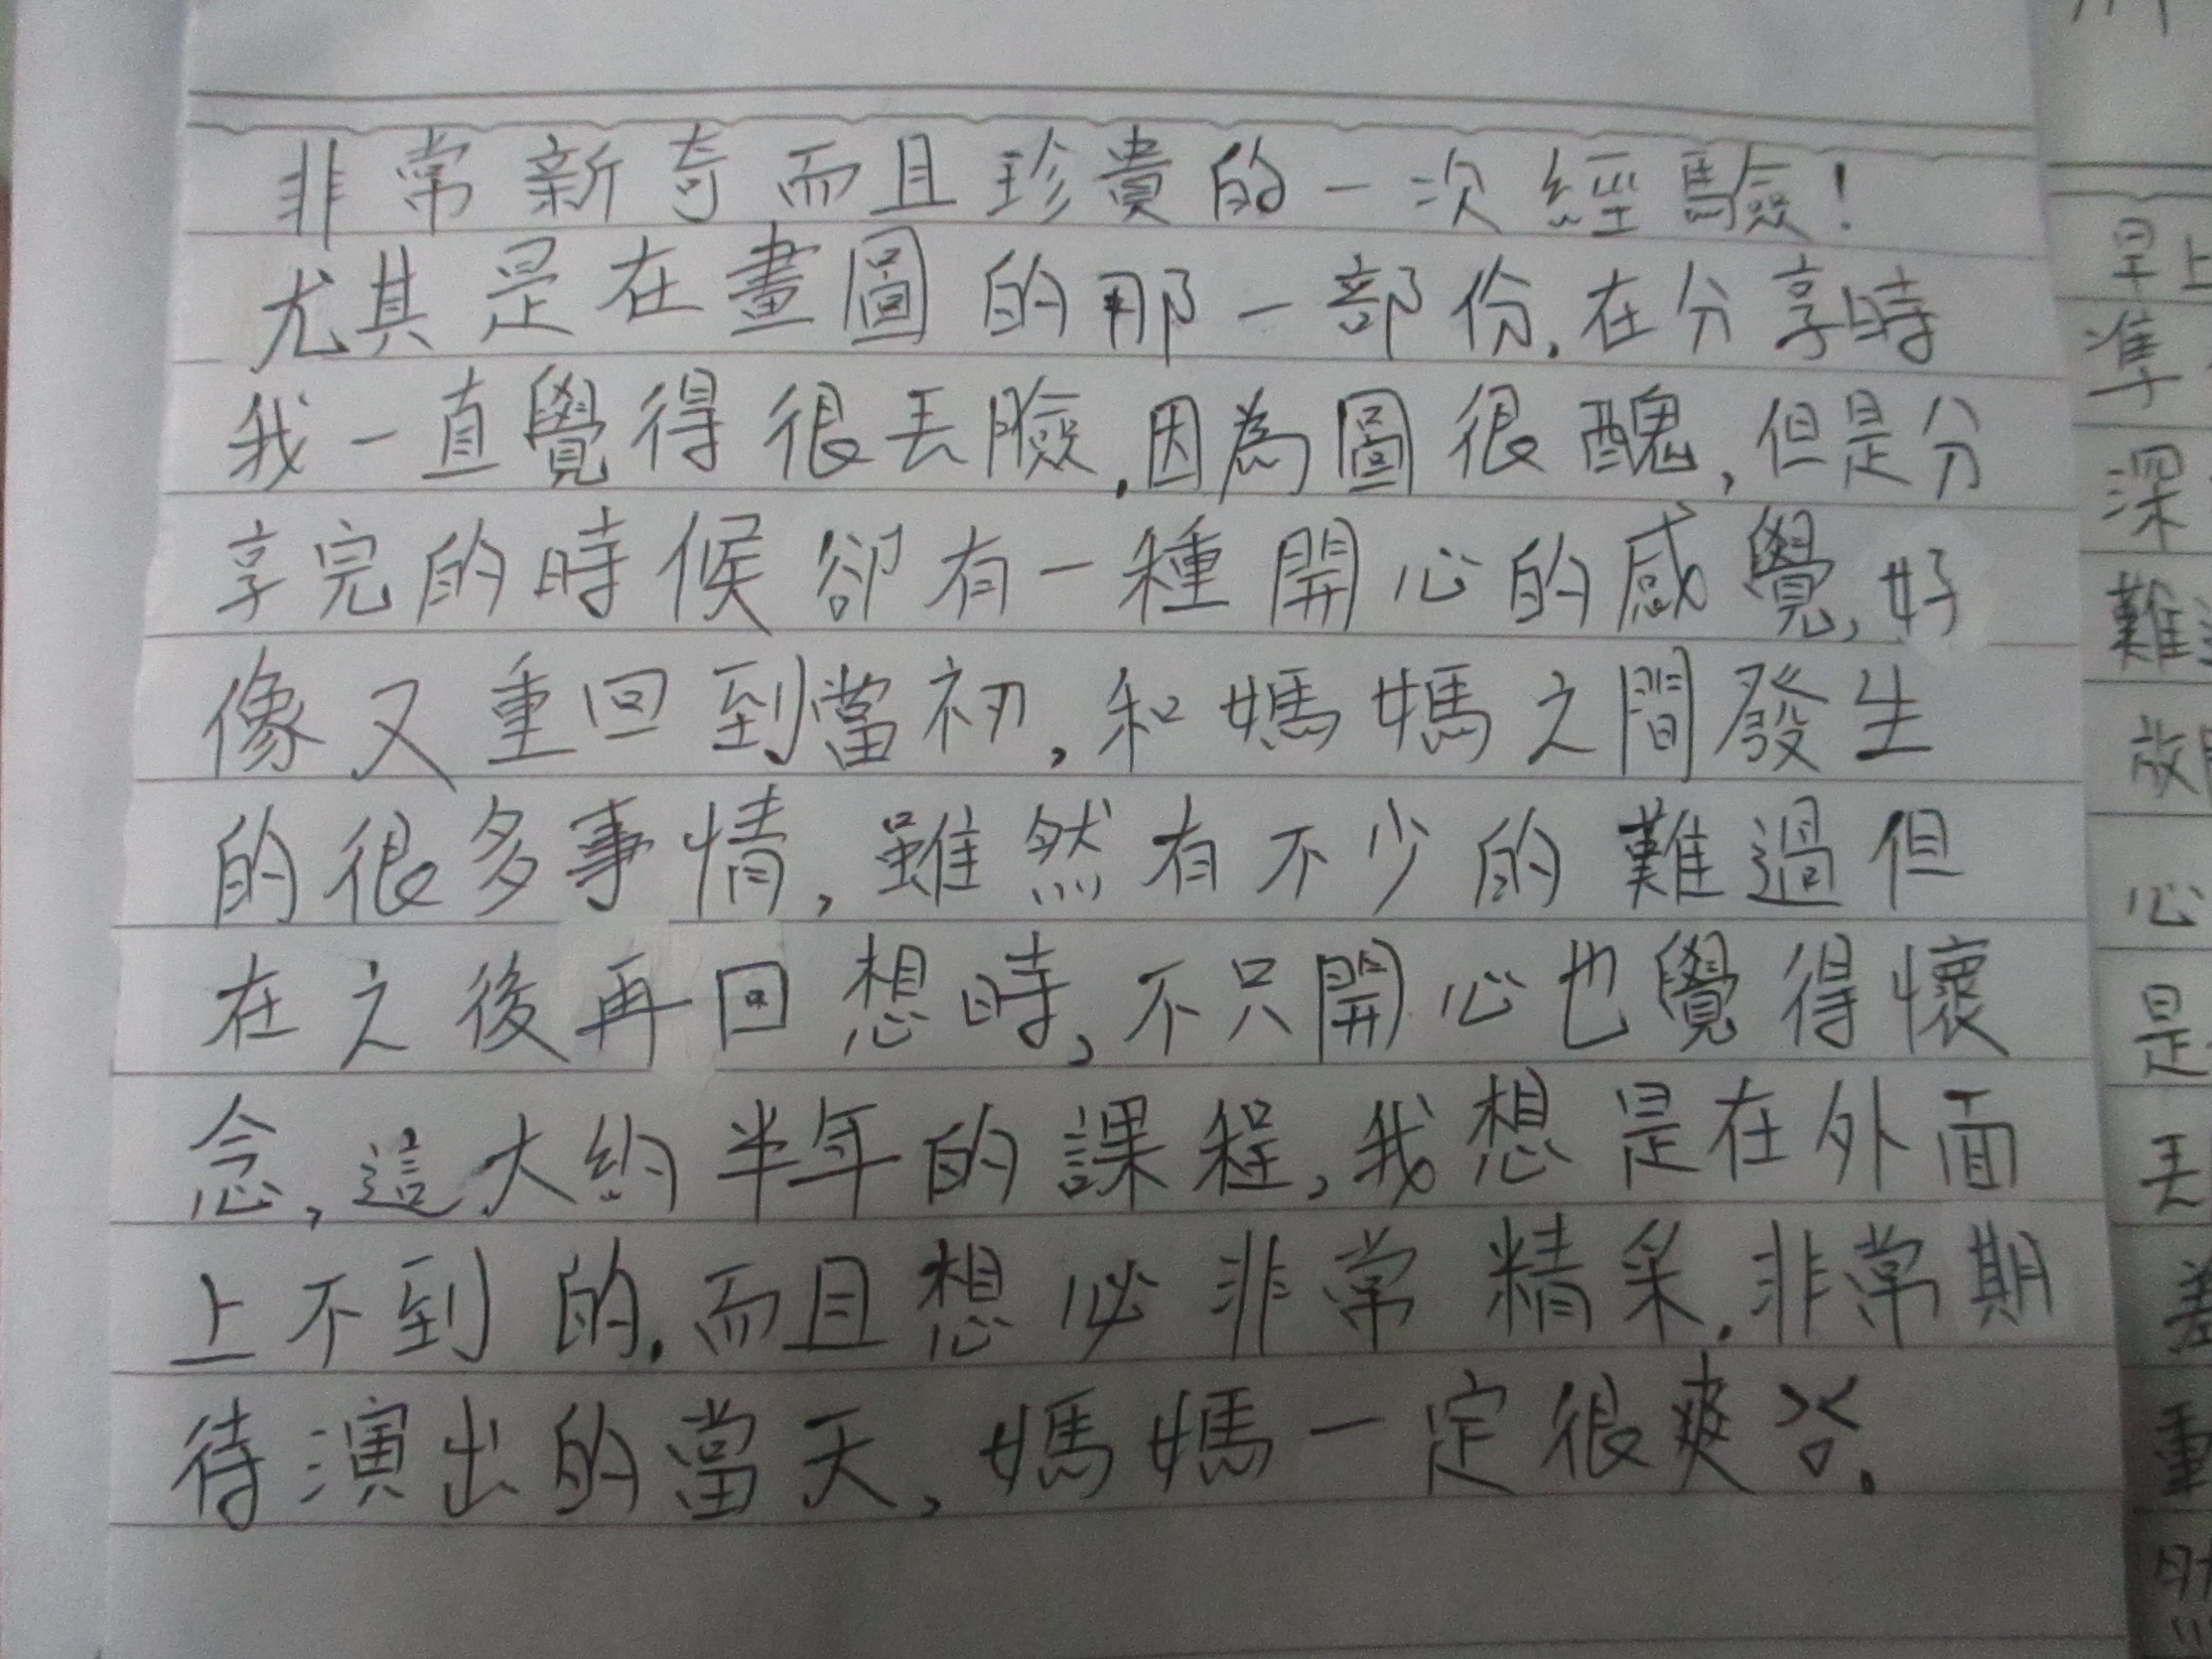 非常新奇而且珍貴的一次經驗!
尤其是在畫圖的那一部份.在分享時
我一直覺得很丟臉.因為圖很醜,但是分
享完的時候卻有一種開心的感覺,好
像又重回到當初,和媽媽之間發生
的很多事情,雖然有不少的難過但
在之後再回想時,不只開心也覺得懷
念,這大約半年的課程,我想是在外面
上不到的.而且想必非常精采.非常期
待演出的當天,媽媽一定很爽
早上
準
深
難
放
心
是
丟